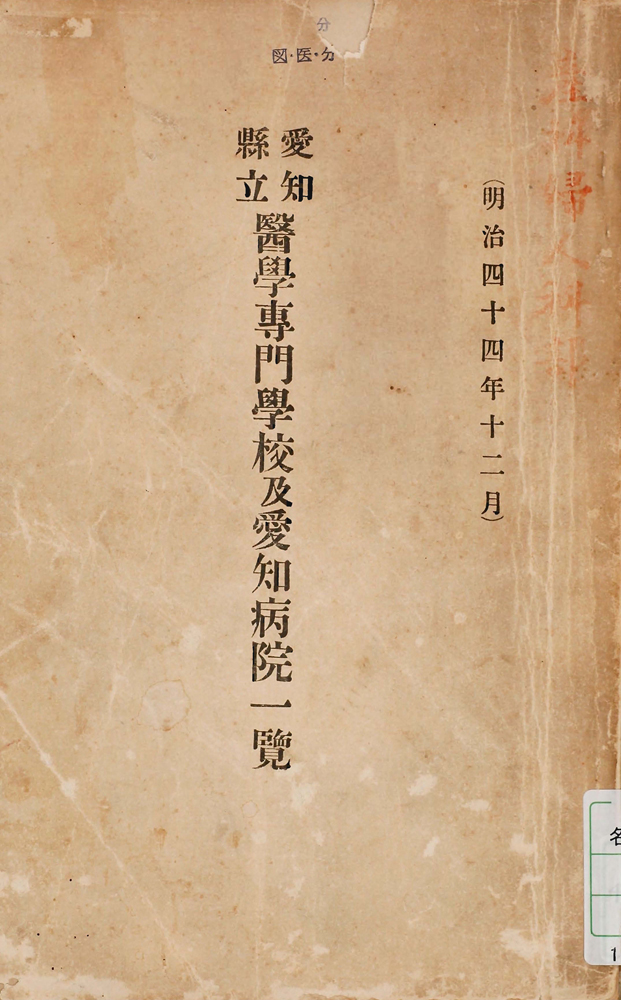 分
図・医・分
産科婦人科
(明治四十四年十二月)
愛知
縣立
醫學專門學校及愛知病院一覽
名
1